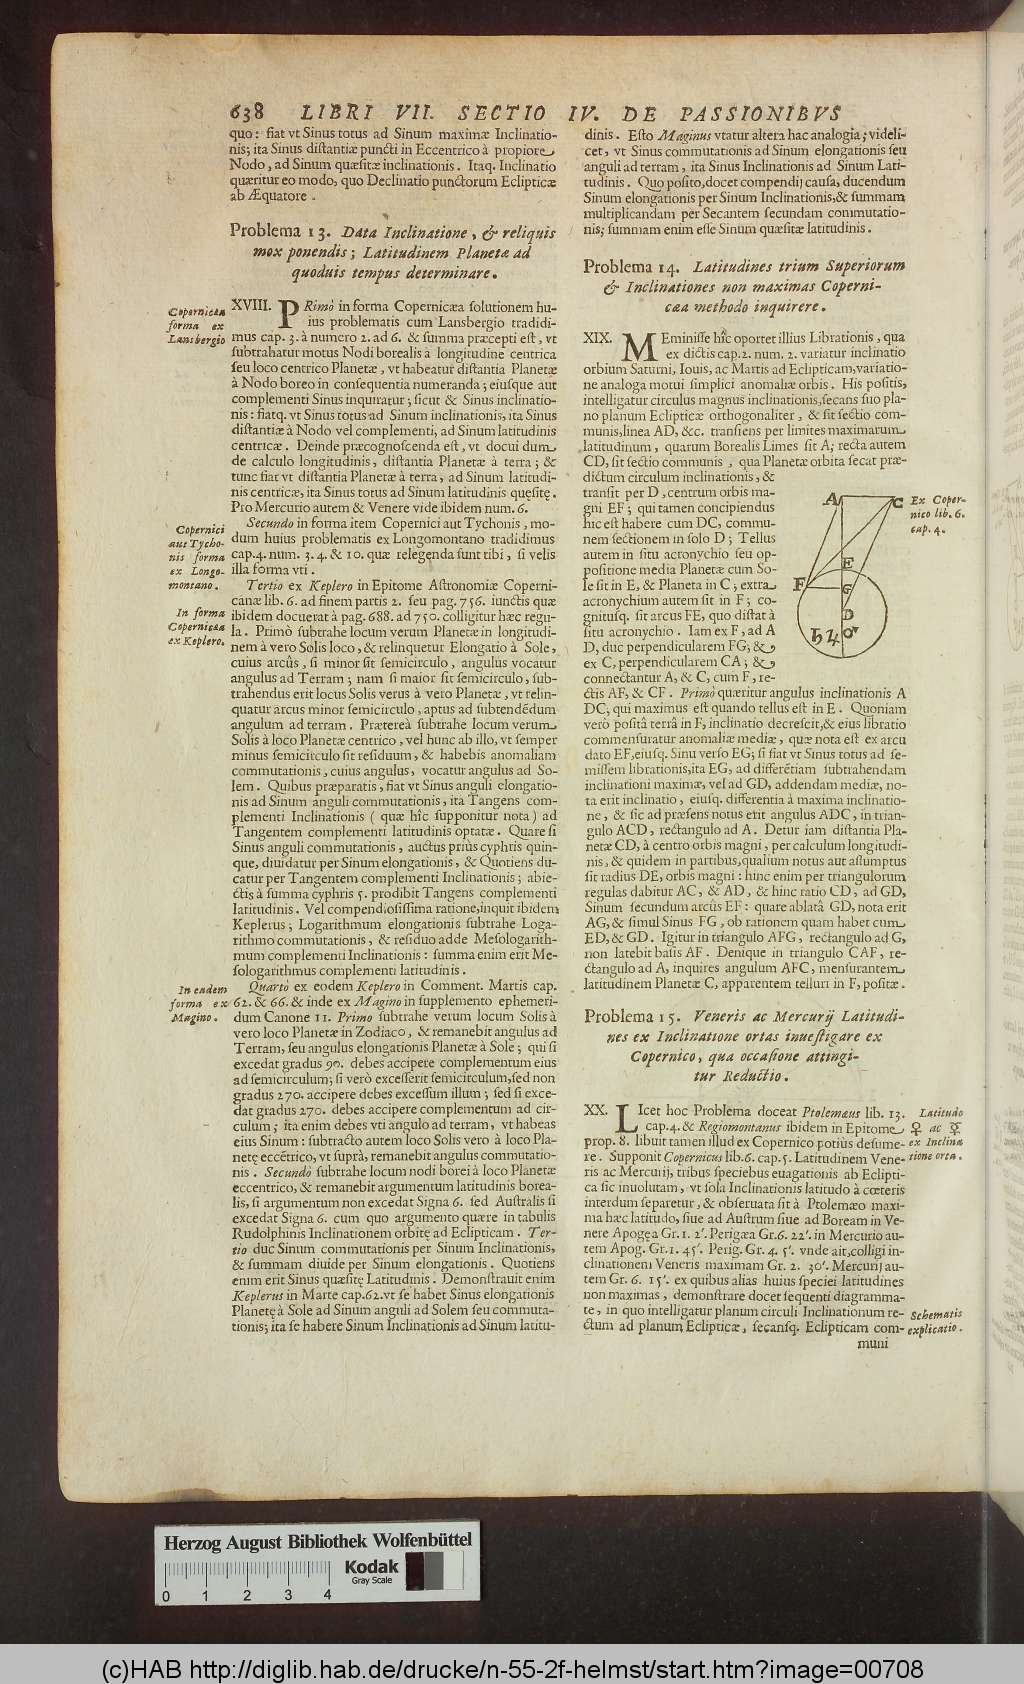 638 LIBRI VII. SECTIO IV. DE PASSIONIBVS
quo: fiat vt Sinus totus ad Sinum maximæ Inclinatio-
nis; ita Sinus distantiæ puncti in Eccentrico à propiore
Nodo, ad Sinum quæsitæ inclinationis. Itaq. Inclinatio
quæritur eo modo, quo Declinatio punctorum Eclipticæ
ab Æquatore.
Problema 13. Data Inclinatione, & reliquis
mox ponendis; Latitudinem Planetæ ad
quoduis tempus determinare.
Copernicæa
forma ex
Lansbergio
XVIII. PRimò in forma Copernicæa solutionem hu-
ius problematis cum Lansbergio tradidi-
mus cap. 3. à numero 2. ad 6. & summa præcepti est, vt
subtrahatur motus Nodi borealis à longitudine centrica
seu loco centrico Planetæ, vt habeatur distantia Planetæ
à Nodo boreo in consequentia numeranda; eiusque aut
complementi Sinus inquiratur; sicut & Sinus inclinatio-
nis: fiatq. vt Sinus totus ad Sinum inclinationis, ita Sinus
distantiæ à Nodo vel complementi, ad Sinum latitudinis
centricæ. Deinde præcognoscenda est, vt docui dum
de calculo longitudinis, distantia Planetæ à terra; &
tunc fiat vt distantia Planetæ à terra, ad Sinum latitudi-
nis centricæ, ita Sinus totus ad Sinum latitudinis quęsitę.
Pro Mercurio autem & Venere vide ibidem num. 6.
Copernici
aut Tycho-
nis forma
ex Longo-
montano.
Secundo in forma item Copernici aut Tychonis, mo-
dum huius problematis ex Longomontano tradidimus
cap. 4. num. 3. 4. & 10. quæ relegenda sunt tibi, si velis
illa forma vti.
In forma
Copernicæa
ex Keplero.
Tertio ex Keplero in Epitome Astronomiæ Coperni-
canæ lib. 6. ad finem partis 2. seu pag. 756. iunctis quæ
ibidem docuerat à pag. 688. ad 750. colligitur hæc regu-
la. Primò subtrahe locum verum Planetæ in longitudi-
nem à vero Solis loco, & relinquetur Elongatio à Sole,
cuius arcûs, si minor sit semicirculo, angulus vocatur
angulus ad Terram; nam si maior sit semicirculo, sub-
trahendus erit locus Solis verus à vero Planetæ, vt relin-
quatur arcus minor semicirculo, aptus ad subtendēdum
angulum ad terram. Prætereà subtrahe locum verum
Solis à loco Planetæ centrico, vel hunc ab illo, vt semper
minus semicirculo sit residuum, & habebis anomaliam
commutationis, cuius angulus, vocatur angulus ad So-
lem. Quibus præparatis, fiat vt Sinus anguli elongatio-
nis ad Sinum anguli commutationis, ita Tangens com-
plementi Inclinationis (quæ hîc supponitur nota) ad
Tangentem complementi latitudinis optatæ. Quare si
Sinus anguli commutationis, auctus priùs cyphris quin-
que, diuidatur per Sinum elongationis, & Quotiens du-
catur per Tangentem complementi Inclinationis; abie-
ctis à summa cyphris 5. prodibit Tangens complementi
latitudinis. Vel compendiosissima ratione, inquit ibidem
Keplerus; Logarithmum elongationis subtrahe Loga-
rithmo commutationis, & residuo adde Mesologarith-
mum complementi Inclinationis: summa enim erit Me-
sologarithmus complementi latitudinis.
In eadem
forma ex
Magino.
Quartò ex eodem Keplero in Comment. Martis cap.
62. & 66. & inde ex Magino in supplemento ephemeri-
dum Canone 11. Primo subtrahe verum locum Solis à
vero loco Planetæ in Zodiaco, & remanebit angulus ad
Terram, seu angulus elongationis Planetæ à Sole; qui si
excedat gradus 90. debes accipere complementum eius
ad semicirculum; si verò excesserit semicirculum, sed non
gradus 270. accipere debes excessum illum; sed si exce-
dat gradus 270. debes accipere complementum ad cir-
culum; ita enim debes vti angulo ad terram, vt habeas
eius Sinum: subtracto autem loco Solis vero à loco Pla-
netę eccētrico, vt suprà, remanebit angulus commutatio-
nis. Secundò subtrahe locum nodi borei à loco Planetæ
eccentrico, & remanebit argumentum latitudinis borea-
lis, si argumentum non excedat Signa 6. sed Australis si
excedat Signa 6. cum quo argumento quære in tabulis
Rudolphinis Inclinationem orbitę ad Eclipticam. Ter-
tio duc Sinum commutationis per Sinum Inclinationis,
& summam diuide per Sinum elongationis. Quotiens
enim erit Sinus quæsitę Latitudinis. Demonstrauit enim
Keplerus in Marte cap. 62. vt se habet Sinus elongationis
Planetę à Sole ad Sinum anguli ad Solem seu commuta-
tionis; ita se habere Sinum Inclinationis ad Sinum latitu-
dinis. Esto Maginus vtatur altera hac analogia; videli-
cet, vt Sinus commutationis ad Sinum elongationis seu
anguli ad terram, ita Sinus Inclinationis ad Sinum Lati-
tudinis. Quo posito, docet compendij causa, ducendum
Sinum elongationis per Sinum Inclinationis, & summam
multiplicandam per Secantem secundam commutatio-
nis; summam enim esse Sinum quæsitæ latitudinis.
Problema 14. Latitudines trium Superiorum
& Inclinationes non maximas Coperni-
cæa methodo inquirere.
XIX. MEminisse hîc oportet illius Librationis, qua
ex dictis cap. 2. num. 2. variatur inclinatio
orbium Saturni, Iouis, ac Martis ad Eclipticam, variatio-
ne analoga motui simplici anomaliæ orbis. His positis,
intelligatur circulus magnus inclinationis, secans suo pla-
no planum Eclipticæ orthogonaliter, & sit sectio com-
munis, linea AD, &c. transiens per limites maximarum
latitudinum, quarum Borealis Limes sit A; recta autem
CD, sit sectio communis, qua Planetæ orbita secat præ-
dictum circulum inclinationis, &
transit per D, centrum orbis ma-
gni EF; qui tamen concipiendus
hic est habere cum DC, commu-
nem sectionem in solo D; Tellus
autem in situ acronychio seu op-
positione media Planetæ cum So-
le sit in E, & Planeta in C; extra
acronychium autem sit in F; co-
gnitusq. sit arcus FE, quo distat à
situ acronychio. Iam ex F, ad A
D, duc perpendicularem FG; &
ex C, perpendicularem CA; &
connectantur A, & C, cum F, re-
ctis AF, & CF. Primò quæritur angulus inclinationis A
DC, qui maximus est quando tellus est in E. Quoniam
verò positâ terrâ in F, inclinatio decrescit, & eius libratio
commensuratur anomaliæ mediæ, quæ nota est ex arcu
dato EF, eiusq. Sinu verso EG; si fiat vt Sinus totus ad se-
missem librationis, ita EG, ad differētiam subtrahendam
inclinationi maximæ, vel ad GD, addendam mediæ, no-
ta erit inclinatio, eiusq. differentia à maxima inclinatio-
ne, & sic ad præsens notus erit angulus ADC, in trian-
gulo ACD, rectangulo ad A. Detur iam distantia Pla-
netæ CD, à centro orbis magni, per calculum longitudi-
nis, & quidem in partibus, qualium notus aut assumptus
sit radius DE, orbis magni: hinc enim per triangulorum
regulas dabitur AC, & AD, & hinc ratio CD, ad GD,
Sinum secundum arcûs EF: quare ablatâ GD, nota erit
AG, & simul Sinus FG, ob rationem quam habet cum
ED, & GD. Igitur in triangulo AFG, rectangulo ad G,
non latebit basis AF. Denique in triangulo CAF, re-
ctangulo ad A, inquires angulum AFC, mensurantem
latitudinem Planetæ C, apparentem telluri in F, positæ.
A C
E
F G
D
♄ ♃ ♂
Ex Coper-
nico lib. 6.
cap. 4.
Problema 15. Veneris ac Mercurij Latitudi-
nes ex Inclinatione ortas inuestigare ex
Copernico, qua occasione attingi-
tur Reductio.
XX. LIcet hoc Problema doceat Ptolemæus lib. 13.
cap. 4. & Regiomontanus ibidem in Epitome
prop. 8. libuit tamen illud ex Copernico potiùs desume-
re. Supponit Copernicus lib. 6. cap. 5. Latitudinem Vene-
ris ac Mercurij, tribus speciebus euagationis ab Eclipti-
ca sic inuolutam, vt sola Inclinationis latitudo à cœteris
interdum separetur, & obseruata sit à Ptolemæo maxi-
ma hæc latitudo, siue ad Austrum siue ad Boream in Ve-
nere Apogęa Gr. 1. 2'. Perigæa Gr. 6. 22'. in Mercurio au-
tem Apog. Gr. 1. 45'. Perig. Gr. 4. 5'. vnde ait, colligi in-
clinationem Veneris maximam Gr. 2. 30'. Mercurij au-
tem Gr. 6. 15'. ex quibus alias huius speciei latitudines
non maximas, demonstrare docet sequenti diagramma-
te, in quo intelligatur planum circuli Inclinationum re-
ctum ad planum Eclipticæ, secansq. Eclipticam com-
muni
Latitudo
♀ ac ☿
ex Inclina
tione orta.
Schematis
explicatio.
Herzog August Bibliothek Wolfenbüttel
Kodak
Gray Scale
0 1 2 3 4
(c)HAB http://diglib.hab.de/drucke/n-55-2f-helmst/start.htm?image=00708